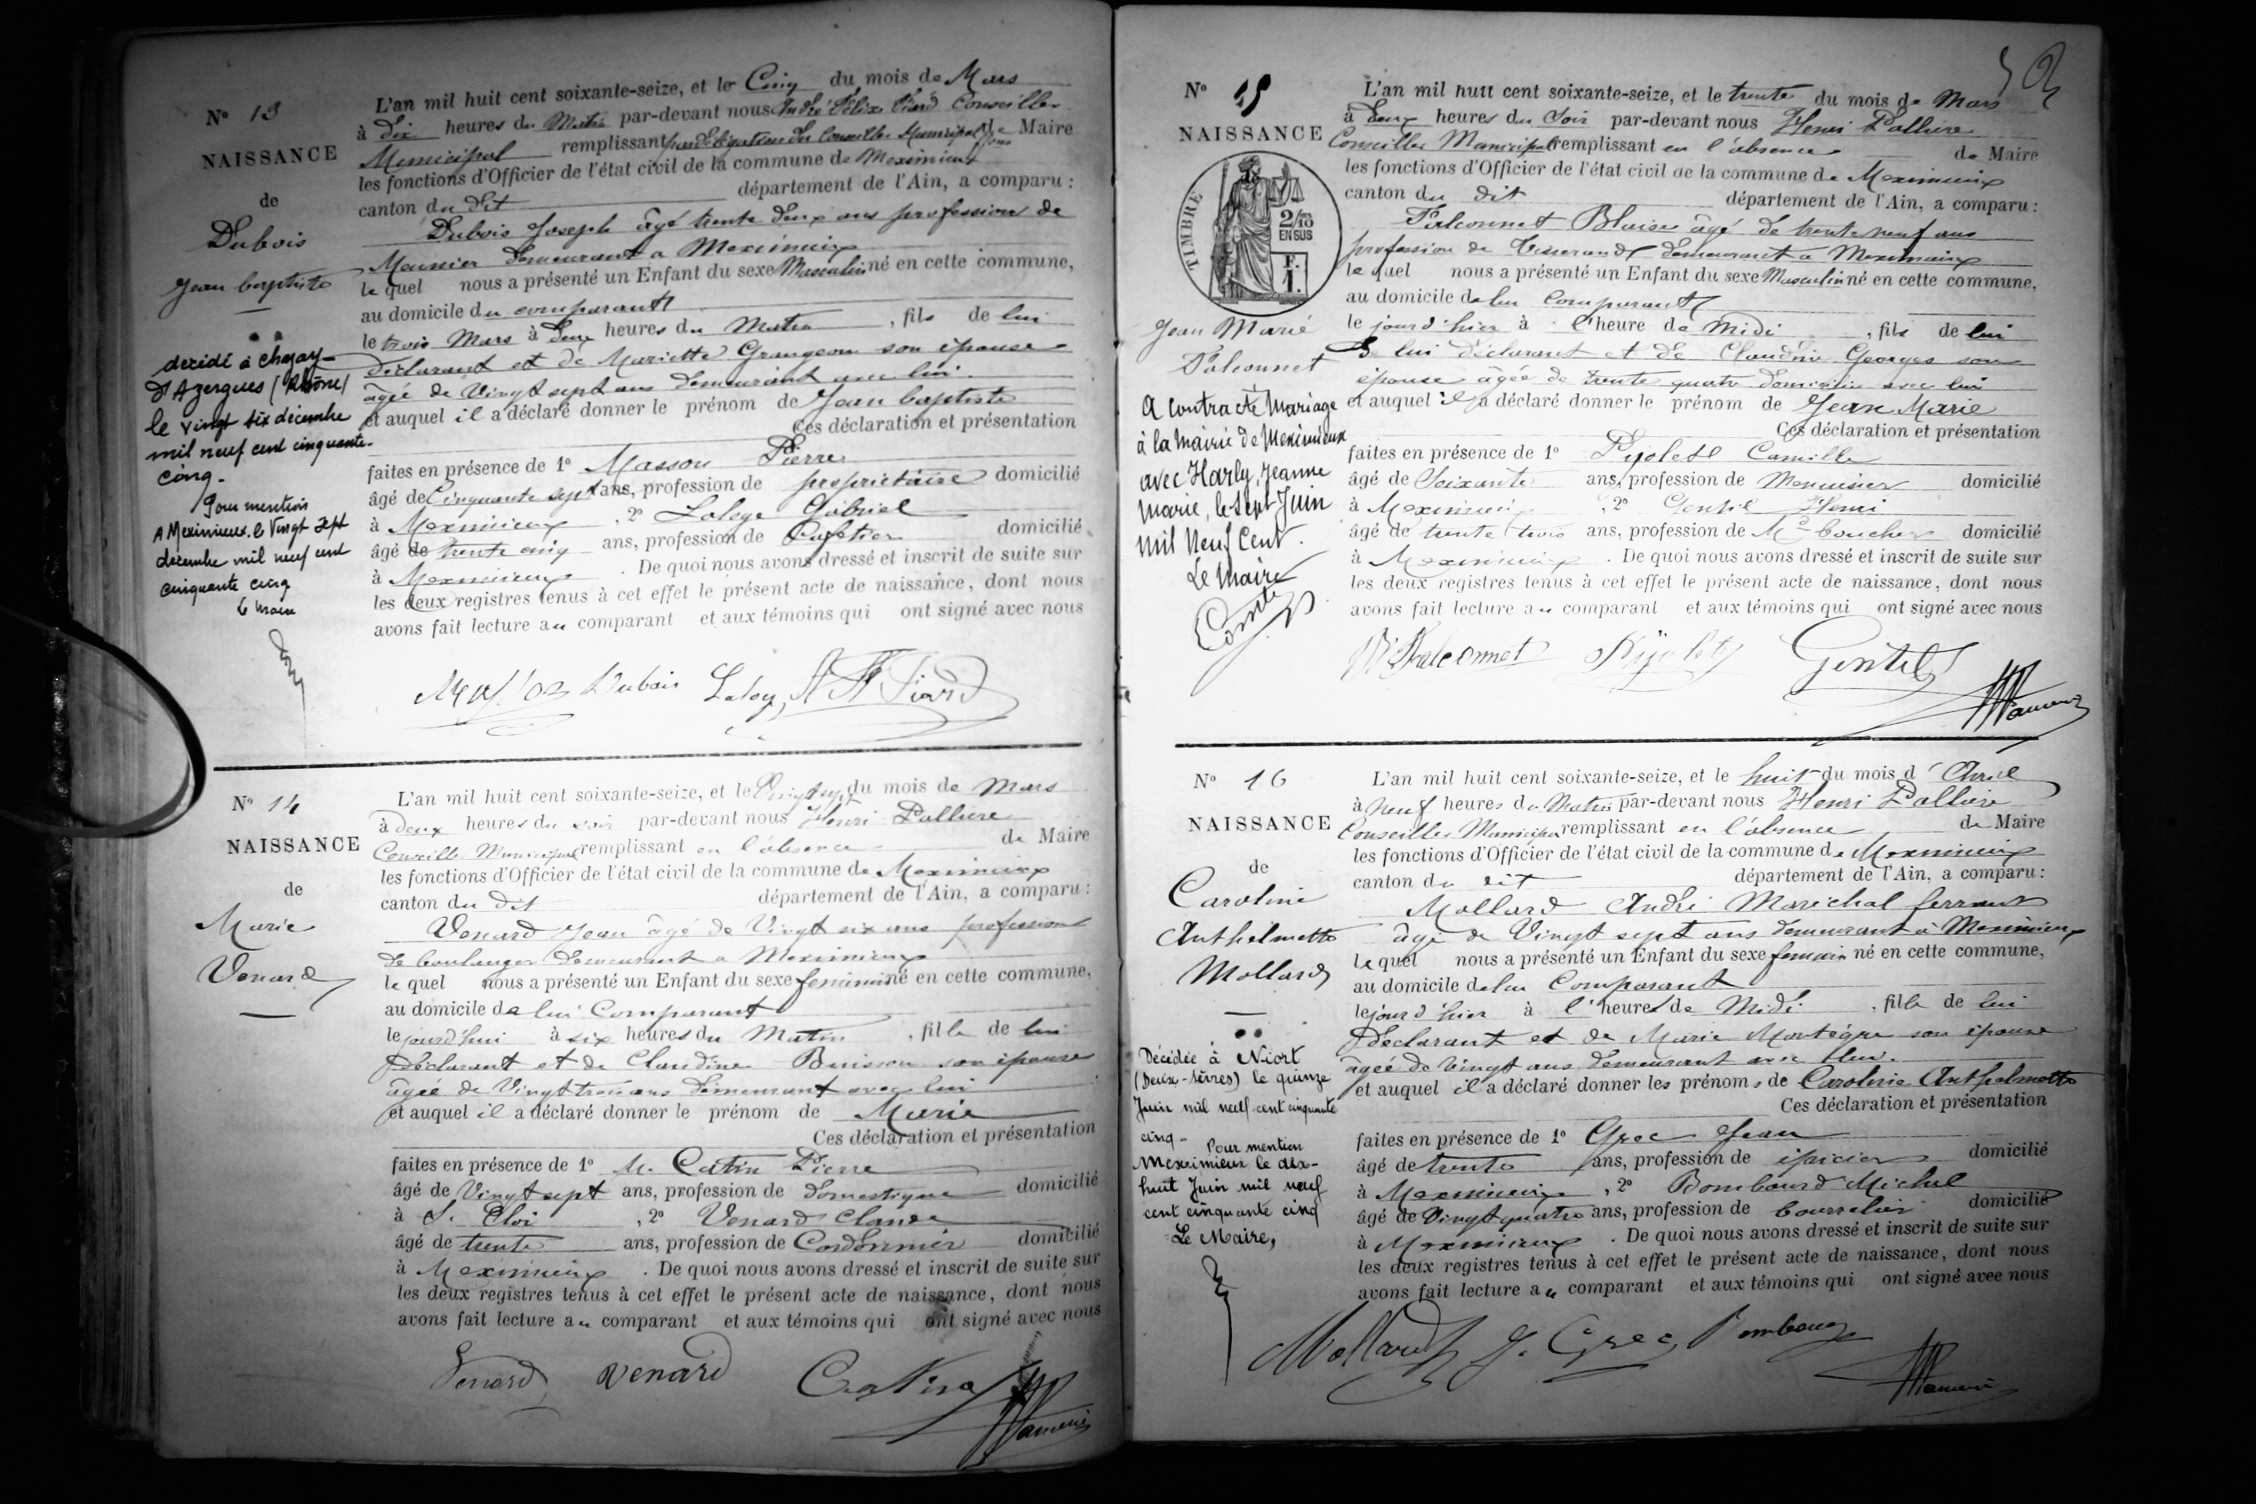 N° 13
NAISSANCE
de
Dubois
Jean baptiste
décédé à Chazay-
d'Azergues (Rhône)
le vingt six décembre
mil neuf cent cinquante-
cinq.
Pour mention
A Meximieux, le vingt sept
décembre mil neuf cent
cinquante cinq
Le Maire
L'an mil huit cent soixante-seize, et le Cinq du mois de Mars
à dix heures du Matin par-devant nous André Félix Piard Conseiller
Municipal remplissant par délégation du Conseiller Municipal de Maire
les fonctions d'Officier de l'état civil de la commune de Meximieux
canton du dit département de l'Ain, a comparu :
Dubois Joseph âgé trente deux ans profession de
Meunier demeurant a Meximieux
lequel nous a présenté un Enfant du sexe Masculin né en cette commune,
au domicile du comparant
le trois Mars à deux heures du Matin, fils de lui
déclarant et de Mariette Grangeon son épouse
âgée de Vingt sept ans demeurant avec lui
et auquel il a déclaré donner le prénom de Jean baptiste
Ces déclaration et présentation
faites en présence de 1° Masson Pierre
âgé de Cinquante sept ans, profession de propriétaire domicilié
à Meximieux, 2° Laloge Gabriel
âgé de trente cinq ans, profession de Cafetier domicilié
à Meximieux. De quoi nous avons dressé et inscrit de suite sur
les deux registres tenus à cet effet le présent acte de naissance, dont nous
avons fait lecture au comparant et aux témoins qui ont signé avec nous
Dubois Laloge A F Piard
N° 14
NAISSANCE
de
Marie
Venard
L'an mil huit cent soixante-seize, et le du mois de Mars
à deux heures du soir par-devant nous Henri Pallière
Conseiller Municipal remplissant en l'absence de Maire
les fonctions d'Officier de l'état civil de la commune de Meximieux
canton du dit département de l'Ain, a comparu :
Venard Jean âgé de Vingt six ans profession
de boulanger demeurant a Meximieux
lequel nous a présenté un Enfant du sexe feminin né en cette commune,
au domicile de lui Comparant
le jourd'hui à six heures du Matin, fille de lui
Déclarant et de Claudine Buisson son épouse
âgée de Vingt trois ans demeurant avec lui
et auquel il a déclaré donner le prénom de Marie
Ces déclaration et présentation
faites en présence de 1° M. Catin Pierre
âgé de Vingt sept ans, profession de domestique domicilié
à S. Eloi, 2° Venard Claude
âgé de trente ans, profession de Cordonnier domicilié
à Meximieux. De quoi nous avons dressé et inscrit de suite sur
les deux registres tenus à cet effet le présent acte de naissance, dont nous
avons fait lecture au comparant et aux témoins qui ont signé avec nous
Venard Venard Catin
N° 15
NAISSANCE
TIMBRE
2/10
EN SUS
F.
1.
Jean Marie
Falconnet
A contracté Mariage
à la Mairie de Meximieux
avec Harly, Jeanne
Marie, le Sept Juin
Mil Neuf Cent.
Le Maire
L'an mil huit cent soixante-seize, et le trente du mois de Mars
à deux heures du Soir par-devant nous Henri Pallière
Conseiller Municipal remplissant en l'absence de Maire
les fonctions d'Officier de l'état civil de la commune de Meximieux
canton du dit département de l'Ain, a comparu :
Falconnet Blaise âgé de trente neuf ans
profession de Tisserand demeurant a Meximieux
lequel nous a présenté un Enfant du sexe Masculin né en cette commune,
au domicile de lui Comparant
le jourd'hier à l'heure de Midi, fils de lui
De lui déclarant et de Claudine Georges son
épouse âgée de trente quatre domiciliée avec lui
et auquel il a déclaré donner le prénom de Jean Marie
Ces déclaration et présentation
faites en présence de 1° Camille
âgé de Soixante ans, profession de Menuisier domicilié
à Meximieux, 2° Gentil Henri
âgé de trente trois ans, profession de Md boucher domicilié
à Meximieux. De quoi nous avons dressé et inscrit de suite sur
les deux registres tenus à cet effet le présent acte de naissance, dont nous
avons fait lecture au comparant et aux témoins qui ont signé avec nous
Falconnet Gentil
N° 16
NAISSANCE
de
Caroline
Anthelmette
Mollard
Décédée à Niort
(Deux-Sèvres) le quinze
Juin mil neuf cent cinquante
cinq -
Pour mention
Meximieux le dix-
huit Juin mil neuf
cent cinquante cinq
Le Maire,
L'an mil huit cent soixante-seize, et le huit du mois d'Avril
à neuf heures du Matin par-devant nous Henri Pallière
Conseiller Municipal remplissant en l'absence de Maire
les fonctions d'Officier de l'état civil de la commune de Meximieux
canton du dit département de l'Ain, a comparu :
Mollard André Maréchal ferrant
âgé de Vingt sept ans demeurant à Meximieux
lequel nous a présenté un Enfant du sexe feminin né en cette commune,
au domicile de lui Comparant
le jourd'hier à l'heure de Midi, fille de lui
Déclarant et de Marie Montégre son épouse
âgée de Vingt ans demeurant avec lui.
et auquel il a déclaré donner les prénoms de Caroline Anthelmette
Ces déclaration et présentation
faites en présence de 1° Grec Jean
âgé de trente ans, profession de épicier domicilié
à Meximieux, 2° Bombourd Michel
âgé de Vingt quatre ans, profession de bourrelier domicilié
à Meximieux. De quoi nous avons dressé et inscrit de suite sur
les deux registres tenus à cet effet le présent acte de naissance, dont nous
avons fait lecture au comparant et aux témoins qui ont signé avec nous
Mollard J. Grec